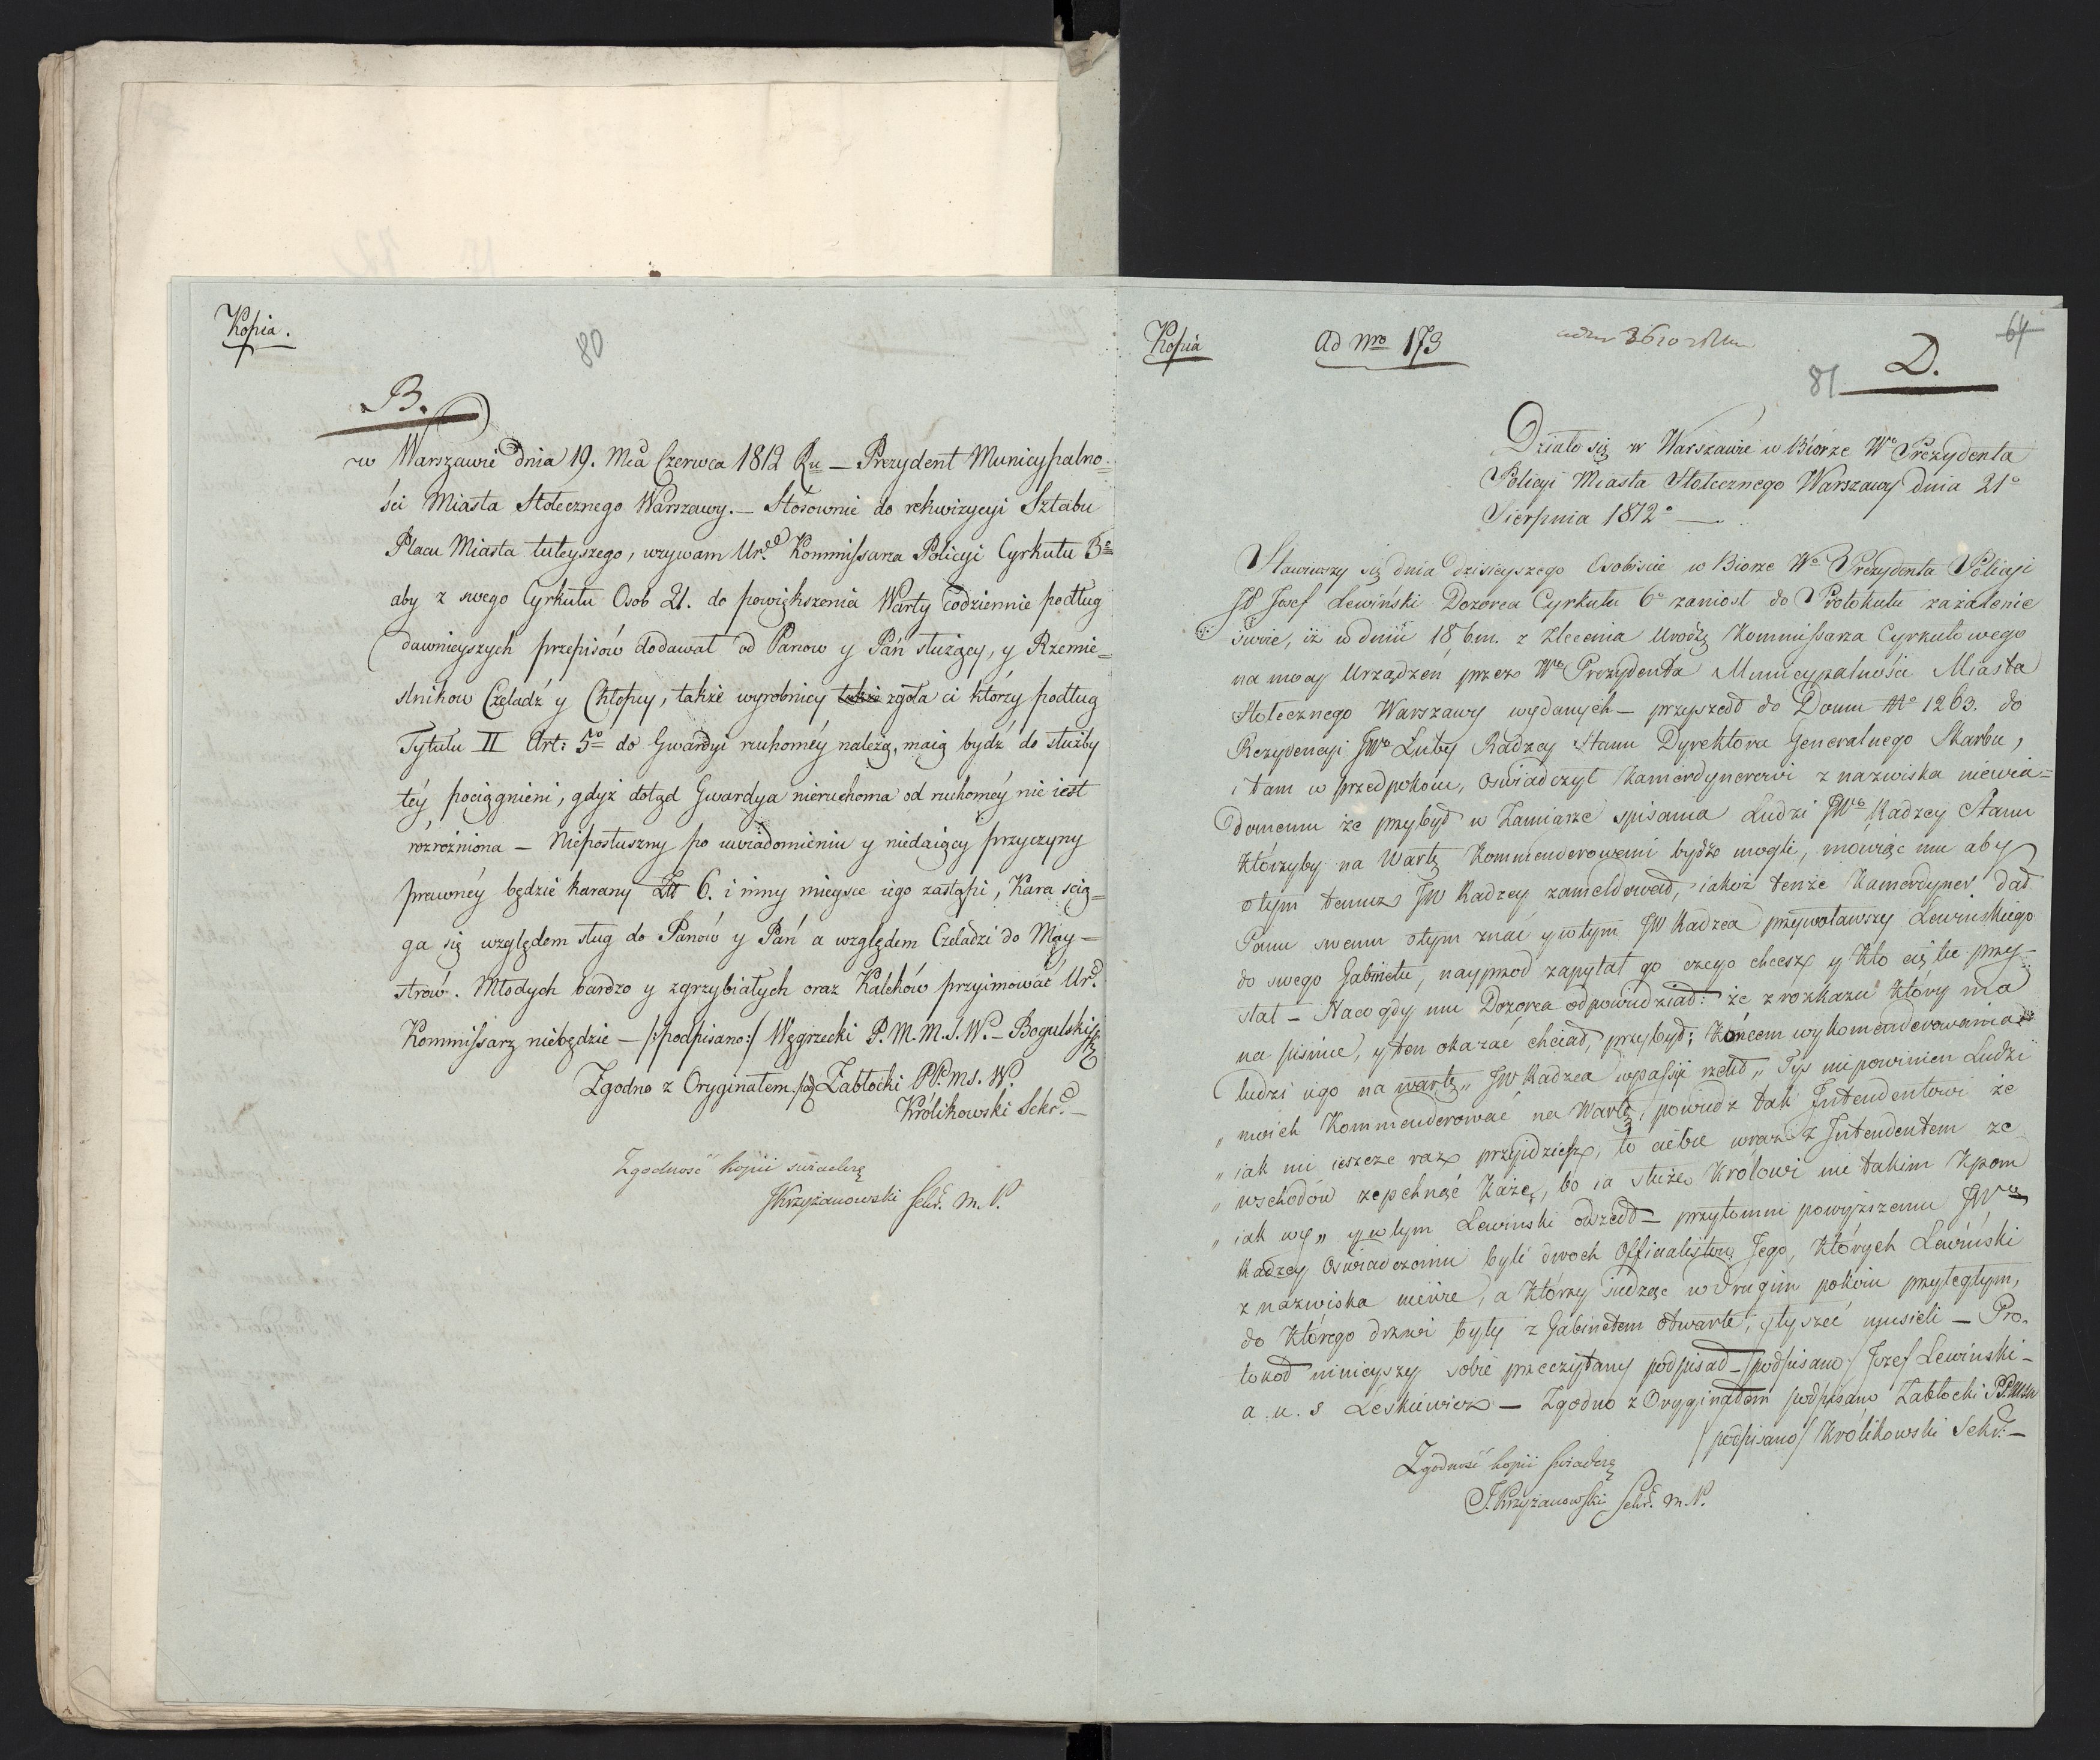 Kopia.
80
B.
w Warszawie dnia 19. Mca Czerwca 1812 Ru — Prezydent Municypalno=
ści Miasta Stołecznego Warszawy. — Stosownie do rekwizycyi Sztabu
Placu Miasta tuteyszego, wzywam Ur. Kommissarza Policyi Cyrkułu 3º
aby z swego Cyrkułu Osob 21. do powiększenia Warty codziennie podług
dawnieyszych przepisów dodawał od Panow y Pań służący, y Rzemie=
slnikow Czeladź y Chłopcy, także wyrobnicy także zgoła ci którzy podług
Tytułu II Art: 5º do Gwardyi ruchoméy należą, maią bydź do służby
téy pociągnieni, gdyż dotąd Gwardya nieruchoma od ruchoméy nie iest
rozrożniona — Nieposłuszny po uwiadomieniu y niedaiący przyczyny
prawnéy będzie karany Zł 6. i inny mieysce iego zastąpi, Kara scią=
ga się względem sług do Panów y Pań a względem Czeladzi do May=
strów. Młodych bardzo y zgrzybiałych oraz Kaleków przyimować Ur.
Kommissarz niebędzie — /:podpisano:/ Węgrzecki P. M. M. S. W. — Bogulski
Zgodno z Oryginałem Zabłocki PPMS. W.
Królikowski Sekr. —
Zgodność kopii swiadczę
JKrzyżanowski Sekr. M. P.
Kopia
Ad Nro 173
64
81
D.
Działo się w Warszawie w Biorze Wº Prezydenta
Policyi Miasta Stołecznego Warszawy dnia 21º
Sierpnia 1812º —
Stawiwszy się dnia dzisieyszego Osobiście w Biorze Wº Prezydenta Policyi
JP Josef Lewiński Dozorca Cyrkułu 6º zaniosł do Protokułu zażalenie
swoie, iż w dniu 18 bm. z Zlecenia Urodz Kommissarza Cyrkułowego
na mocy Urządzeń przez Wº Prezydenta Municypalności Miasta
Stołecznego Warszawy wydanych — przyszedł do Domu Nº 1263. do
Rezydencyi JWº Łuby Radzcy Stanu Dyrektora Generalnego Skarbu,
i tam w przedpokoiu, oswiadczył Kamerdynerowi z nazwiska niewia=
domemu że przybył w Zamiarze spisania Ludzi JWº Radzcy Stanu
którzyby na Wartę Kommenderowani bydź mogli, mówiąc mu aby
otym temuż JW Radzcy zameldował, iakoż tenże Kamerdyner dał
Panu swemu otym znać y wtym JW Radzca przywoławszy Lewinskiego
do swego Gabinetu, nayprzod zapytał go czego chcesz y kto cię tu przy=
słał — Naco gdy mu Dozorca odpowiedział: że z rozkazu który ma
na piśmie, y ten okazać chciał, przybył; Końcem wykomenderowania
ludzi iego na wartę „ JW Radzca wpassyi rzekł „ Tyś niepowinien Ludzi
„ moich Kommenderować na Wartę, powiedz tak Intendentowi że
„ iak mi ieszcze raz przyidziesz, to ciebie wraz z Intendentem ze
„ wschodów zepchnąć Każę, bo ia służe Krolowi nie takim Kpom
„ iak wy „ y w tym Lewiński odszedł — przytomni powyższemu JWº
Radzcy Oświadczeniu byli dwoch Officialistow Jego, których Lewiński
z nazwiska niewie, a którzy siedząc w drugim pokoiu przyległym,
do którego drzwi były z Gabinetem otwarte, słyszeć musieli — Pro=
tokoł ninieyszy sobie przeczytany podpisał — /podpisano/ Jozef Lewiński —
a. u. s Leskiewicz — Zgodno z Oryginałem podpisano Zabłocki
/podpisano/ Królikowski Sekr: —
Zgodność kopii świadczę
J. Krzyżanowski Sekr. M. P.